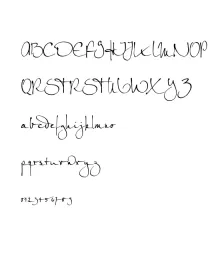 ABCDEFGHIJKLMNOP
QRSTRSTUVWXYZ
abcdefghijklmno
pqrsturwxyz